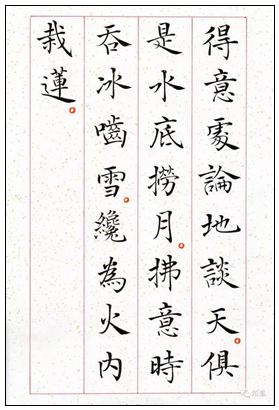 得意處論地談天俱
是水底撈月拂意時
吞冰嚙雪纔為火內
栽蓮